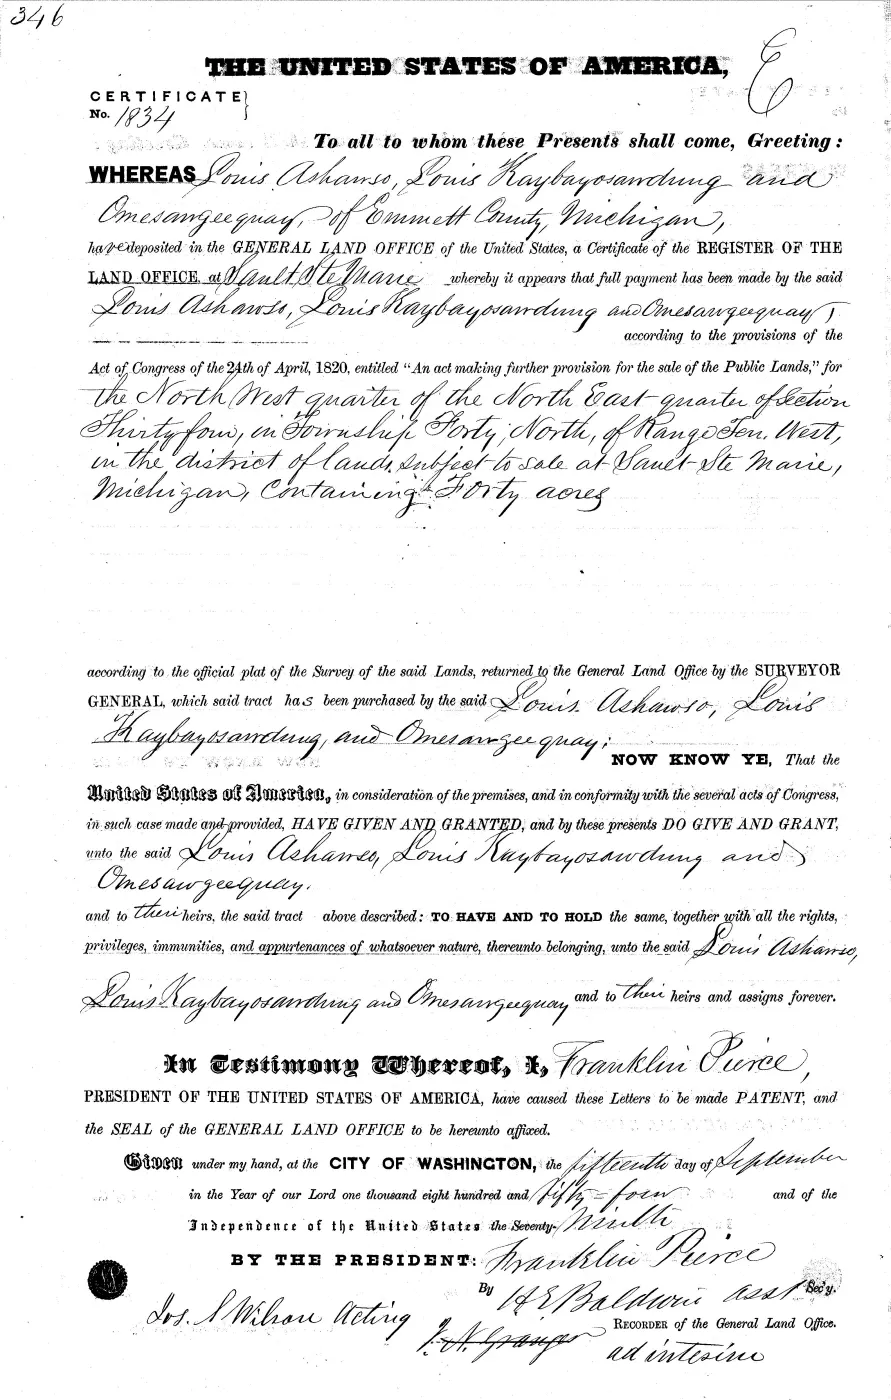 346
THE UNITED STATES OF AMERICA,
E
CERTIFICATE }
No. 1834
To all to whom these Presents shall come, Greeting:
WHEREAS Louis Ashawso, Louis Kaybayosawdung and
Omesawgeequay, of Emmett County, Michigan,
have deposited in the GENERAL LAND OFFICE of the United States, a Certificate of the REGISTER OF THE
LAND OFFICE, at Sault Ste Marie whereby it appears that full payment has been made by the said
Louis Ashawso, Louis Kaybayosawdung and Omesawgeequay,
according to the provisions of the
Act of Congress of the 24th of April, 1820, entitled "An act making further provision for the sale of the Public Lands," for
the North West quarter of the North East quarter of Section
Thirty four, in Township Forty, North, of Range Ten. West,
in the district of lands subject to sale at Sault Ste Marie,
Michigan, containing Forty acres
according to the official plat of the Survey of the said Lands, returned to the General Land Office by the SURVEYOR
GENERAL, which said tract has been purchased by the said Louis. Ashawso, Louis
Kaybayosawdung, and Omesawgeequay;
NOW KNOW YE, That the
United States of America, in consideration of the premises, and in conformity with the several acts of Congress,
in such case made and provided, HAVE GIVEN AND GRANTED, and by these presents DO GIVE AND GRANT,
unto the said Louis Ashawso, Louis Kaybayosawdung and
Omesawgeequay.
and to their heirs, the said tract above described: TO HAVE AND TO HOLD the same, together with all the rights,
privileges, immunities, and appurtenances of whatsoever nature, thereunto belonging, unto the said Louis Ashawso,
Louis Kaybayosawdung and Omesawgeequay and to their heirs and assigns forever.
In Testimony Whereof, I, Franklin Pierce,
PRESIDENT OF THE UNITED STATES OF AMERICA, have caused these Letters to be made PATENT, and
the SEAL of the GENERAL LAND OFFICE to be hereunto affixed.
Given under my hand, at the CITY OF WASHINGTON, the fifteenth day of September
in the Year of our Lord one thousand eight hundred and fifty=four and of the
Independence of the United States the Seventy-Ninth
BY THE PRESIDENT: Franklin Pierce
By H E Baldwin asst Sec'y.
Jos. S Wilson Acting
J. N. Granger RECORDER of the General Land Office.
ad interim